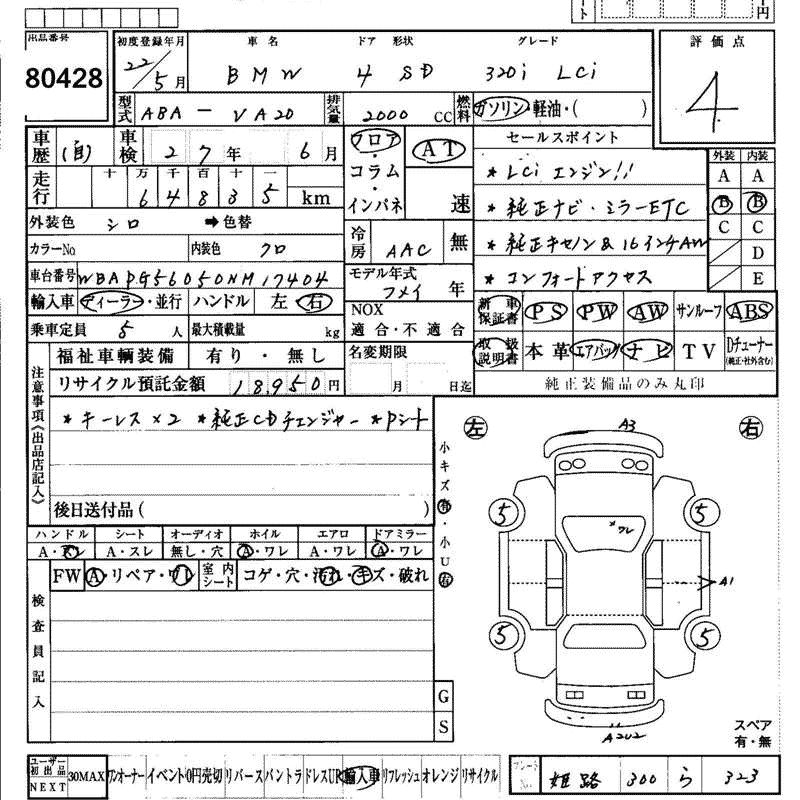 ート 円
出品番号 初度登録年月 車名 ドア 形状 グレード 評価点
80428 22/5月 BMW 4 SD 320i LCi 4
型式 ABA-VA20 排気量 2000 CC 燃料 ガソリン・軽油・( )
車歴 (自) 車検 27年 6月 フロア・コラム・インパネ AT 速 セールスポイント 外装 内装
走行 十 万 千 百 十 一 * LCi エンジン!! A A
6 4 8 3 5 km * 純正ナビ・ミラーETC B B
外装色 シロ ➡色替 冷房 AAC 無 * 純正キセノン & 16インチAW C C
カラーNo 内装色 クロ D
車台番号 WBAPG56050NM17404 モデル年式 年 * コンフォートアクセス E
輸入車 ディーラー・並行 ハンドル 左・右 NOX 適合・不適合 新車保証書 PS PW AW サンルーフ ABS
乗車定員 5 人 最大積載量 kg 取扱説明書 本革 エアバッグ ナビ TV Dチューナー(純正・社外含む)
福祉車輌装備 有り・無し 名変期限 月 日迄 純正装備品のみ丸印
リサイクル預託金額 18950円
注意事項《出品店記入》
* キーレス×2 * 純正CDチェンジャー * Pシート
後日送付品( )
小キズ有・小U有
左 A3 右
5 5
ワレ
A1
5 5
A2U2
ハンドル シート オーディオ ホイル エアロ ドアミラー
A・スレ A・スレ 無し・穴 A・ワレ A・ワレ A・ワレ
FW A・リペア・ワレ 室内シート コゲ・穴・汚れ・キズ・破れ
検査員記入
G
S
スペア
有・無
ユーザー初出品NEXT 30MAX ワンオーナー イベント 0円売切 リバース バントラ ドレスUP 輸入車 リフレッシュ オレンジ リサイクル
プレートNo. 姫路 300 ら 323